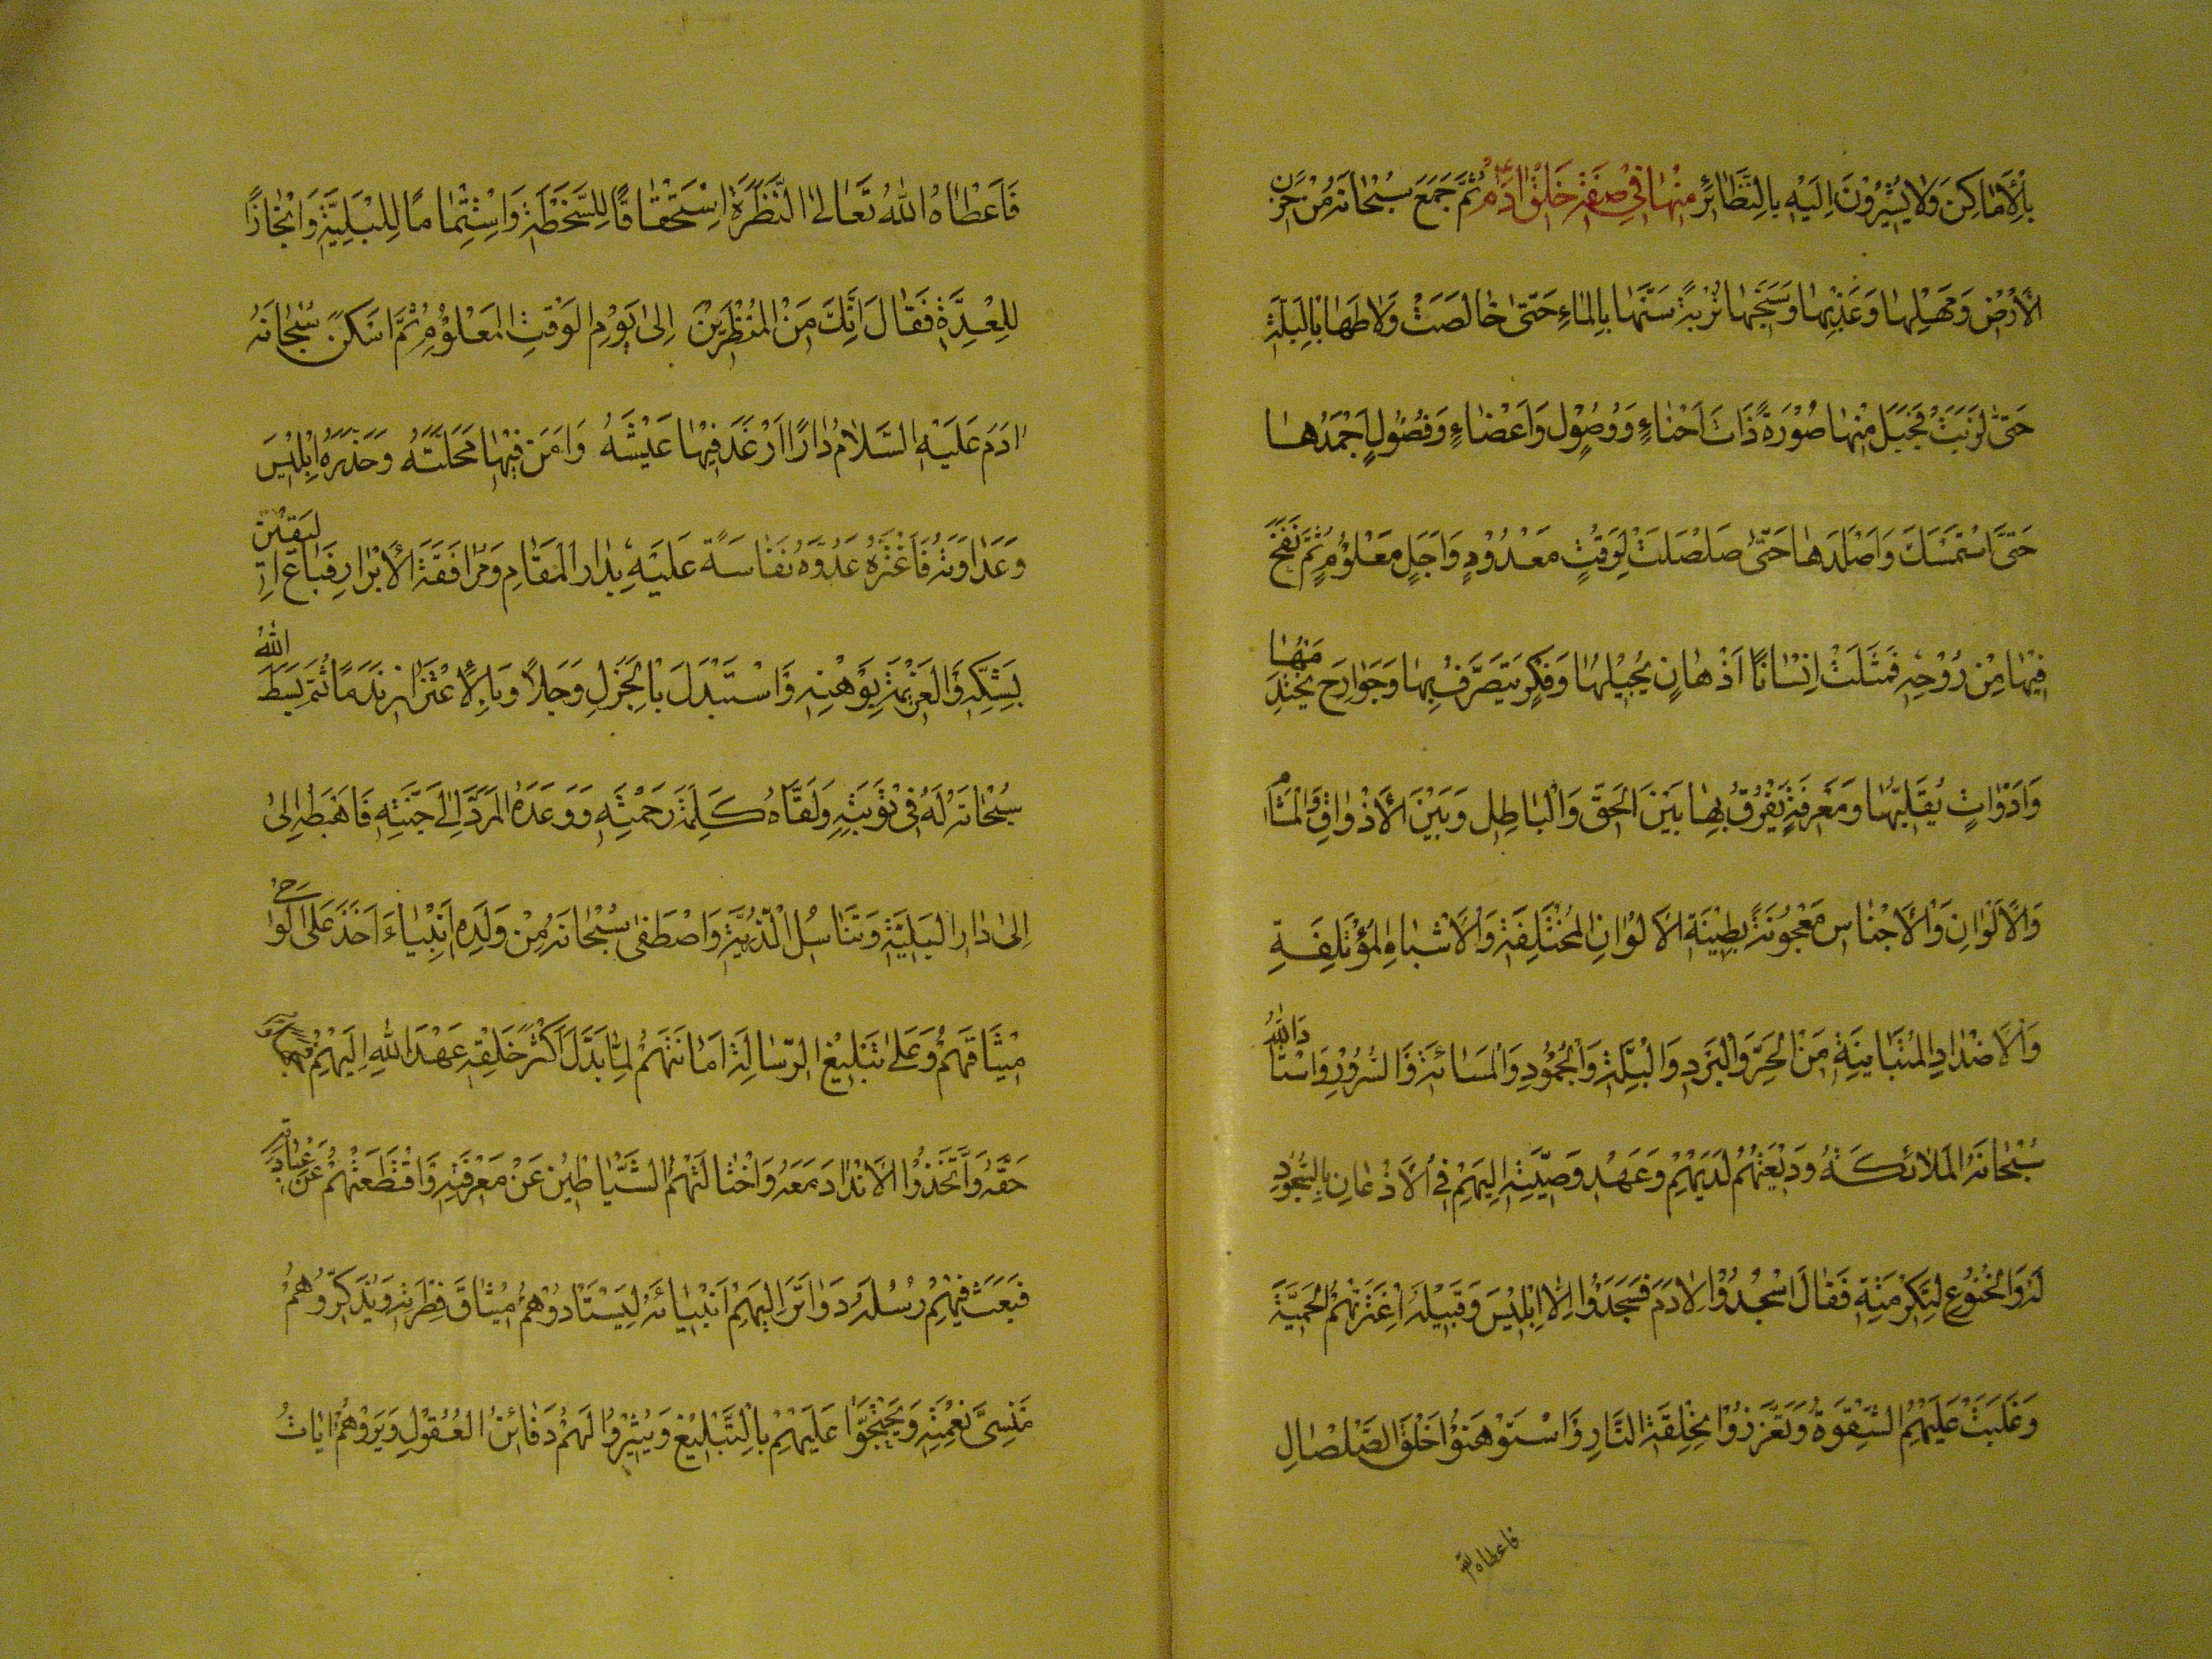 بِالْأَمَاكِنَ وَلَا يُشِيرُوْنَ اِلَيْهِ بِالنَّظَائِرِ مِنْهَا فِي صِفَةِ خَلْقِ اٰدَمَ ثُمَّ جَمَعَ سُبْحَانَهُ مِنْ حَزْنِ
الْأَرْضِ وَسَهْلِهَا وَعَذْبِهَا وَسَبَخِهَا تُرْبَةً سَنَّهَا بِالْمَاءِ حَتّٰى خَالَصَتْ وَلَاطَهَا بِالْبَلَّةِ
حَتّٰى لَزَبَتْ فَجَبَلَ مِنْهَا صُوْرَةً ذَاتَ اَحْنَاءٍ وَوُصُوْلٍ وَاَعْضَاءٍ وَفُصُوْلٍ اَجْمَدَهَا
حَتَّى اسْتَمْسَكَ وَاَصْلَدَهَا حَتّٰى صَلْصَلَتْ لِوَقْتٍ مَعْدُوْدٍ وَاَجَلٍ مَعْلُوْمٍ ثُمَّ نَفَخَ
فِيْهَا مِنْ رُوْحِهِ فَمَثُلَتْ اِنْسَانًا اَذْهَانٍ يُجِيْلُهَا وَفِكَرٍ يَتَصَرَّفُ بِهَا وَجَوَارِحَ يَخْتَدِمُهَا
وَاَدَوَاتٍ يُقَلِّبُهَا وَمَعْرِفَةٍ يَفْرُقُ بِهَا بَيْنَ الْحَقِّ وَالْبَاطِلِ وَبَيْنَ الْأَذْوَاقِ وَالْمَشَامِّ
وَالْأَلْوَانِ وَالْأَجْنَاسِ مَعْجُوْنَةً بِطِيْنَةِ الْأَلْوَانِ الْمُخْتَلِفَةِ وَالْأَشْبَاهِ الْمُؤْتَلِفَةِ
وَالْأَضْدَادِ الْمُتَبَايِنَةِ مِنَ الْحَرِّ وَالْبَرْدِ وَالْبَلَّةِ وَالْجُمُوْدِ وَالْمَسَائَةِ وَالسُّرُوْرِ وَاسْتَأْدَى اللّٰهُ
سُبْحَانَهُ الْمَلَائِكَةَ وَدِيْعَتَهُمْ لَدَيْهِمْ وَعَهْدَ وَصِيَّتِهِ اِلَيْهِمْ فِي الْأَذْعَانِ بِالسُّجُوْدِ
لَهُ وَالْخُنُوْعِ لِتَكْرِمَتِهِ فَقَالَ اسْجُدُوْا لِاٰدَمَ فَسَجَدُوْا اِلَّا اِبْلِيْسَ وَقَبِيْلَهُ اعْتَرَتْهُمُ الْحَمِيَّةُ
وَغَلَبَتْ عَلَيْهِمُ الشِّقْوَةُ وَتَعَزَّزُوْا بِخِلْقَةِ النَّارِ وَاسْتَوْهَنُوْا خَلْقَ الصَّلْصَالِ
فاعطاه الله
فَاَعْطَاهُ اللهُ تَعَالٰى النَّظِرَةَ اِسْتِحْقَاقًا لِلسَّخْطَةِ وَاسْتِتْمَامًا لِلْبَلِيَّةِ وَاِنْجَازًا
لِلْعِدَةِ فَقَالَ اِنَّكَ مِنَ الْمُنْظَرِيْنَ اِلٰى يَوْمِ الْوَقْتِ الْمَعْلُوْمِ ثُمَّ اَسْكَنَ سُبْحَانَهُ
اٰدَمَ عَلَيْهِ السَّلَامُ دَارًا اَرْغَدَ فِيْهَا عَيْشَهُ وَاٰمَنَ فِيْهَا مَحَلَّتَهُ وَحَذَّرَهُ اِبْلِيْسَ
وَعَدَاوَتَهُ فَاغْتَرَّهُ عَدُوُّهُ نَفَاسَةً عَلَيْهِ بِدَارِ الْمَقَامِ وَمُرَافَقَةِ الْأَبْرَارِ فَبَاعَ الْيَقِيْنَ
بِشَكِّهِ وَالْعَزِيْمَةَ بِوَهْنِهِ وَاسْتَبْدَلَ بِالْجَزَلِ وَجَلًا وَبِالْاِعْتِزَازِ نَدَمًا ثُمَّ بَسَطَ اللهُ
سُبْحَانَهُ لَهُ فِي تَوْبَتِهِ وَلَقَّاهُ كَلِمَةَ رَحْمَتِهِ وَوَعَدَهُ الْمَرَدَّ اِلٰى جَنَّتِهِ فَاَهْبَطَهُ اِلٰى
اِلٰى دَارِ الْبَلِيَّةِ وَتَنَاسُلِ الذُّرِّيَّةِ وَاصْطَفٰى سُبْحَانَهُ مِنْ وَلَدِهِ اَنْبِيَاءَ اَخَذَ عَلَى الْوَحْيِ
مِيْثَاقَهُمْ وَعَلٰى تَبْلِيْغِ الرِّسَالَةِ اَمَانَتَهُمْ لَمَّا بَدَّلَ اَكْثَرُ خَلْقِهِ عَهْدَ اللهِ اِلَيْهِمْ فَجَهِلُوا
حَقَّهُ وَاتَّخَذُوا الْأَنْدَادَ مَعَهُ وَاخْتَالَتْهُمُ الشَّيَاطِيْنُ عَنْ مَعْرِفَتِهِ وَاقْتَطَعَتْهُمْ عَنْ عِبَادَتِهِ
فَبَعَثَ فِيْهِمْ رُسُلَهُ وَوَاتَرَ اِلَيْهِمْ اَنْبِيَائَهُ لِيَسْتَأْدُوْهُمْ مِيْثَاقَ فِطْرَتِهِ وَيُذَكِّرُوْهُمْ
مَنْسِيَّ نِعْمَتِهِ وَيَحْتَجُّوْا عَلَيْهِمْ بِالتَّبْلِيْغِ وَيُثِيْرُوْا لَهُمْ دَفَائِنَ الْعُقُوْلِ وَيُرُوْهُمْ اٰيَاتِ